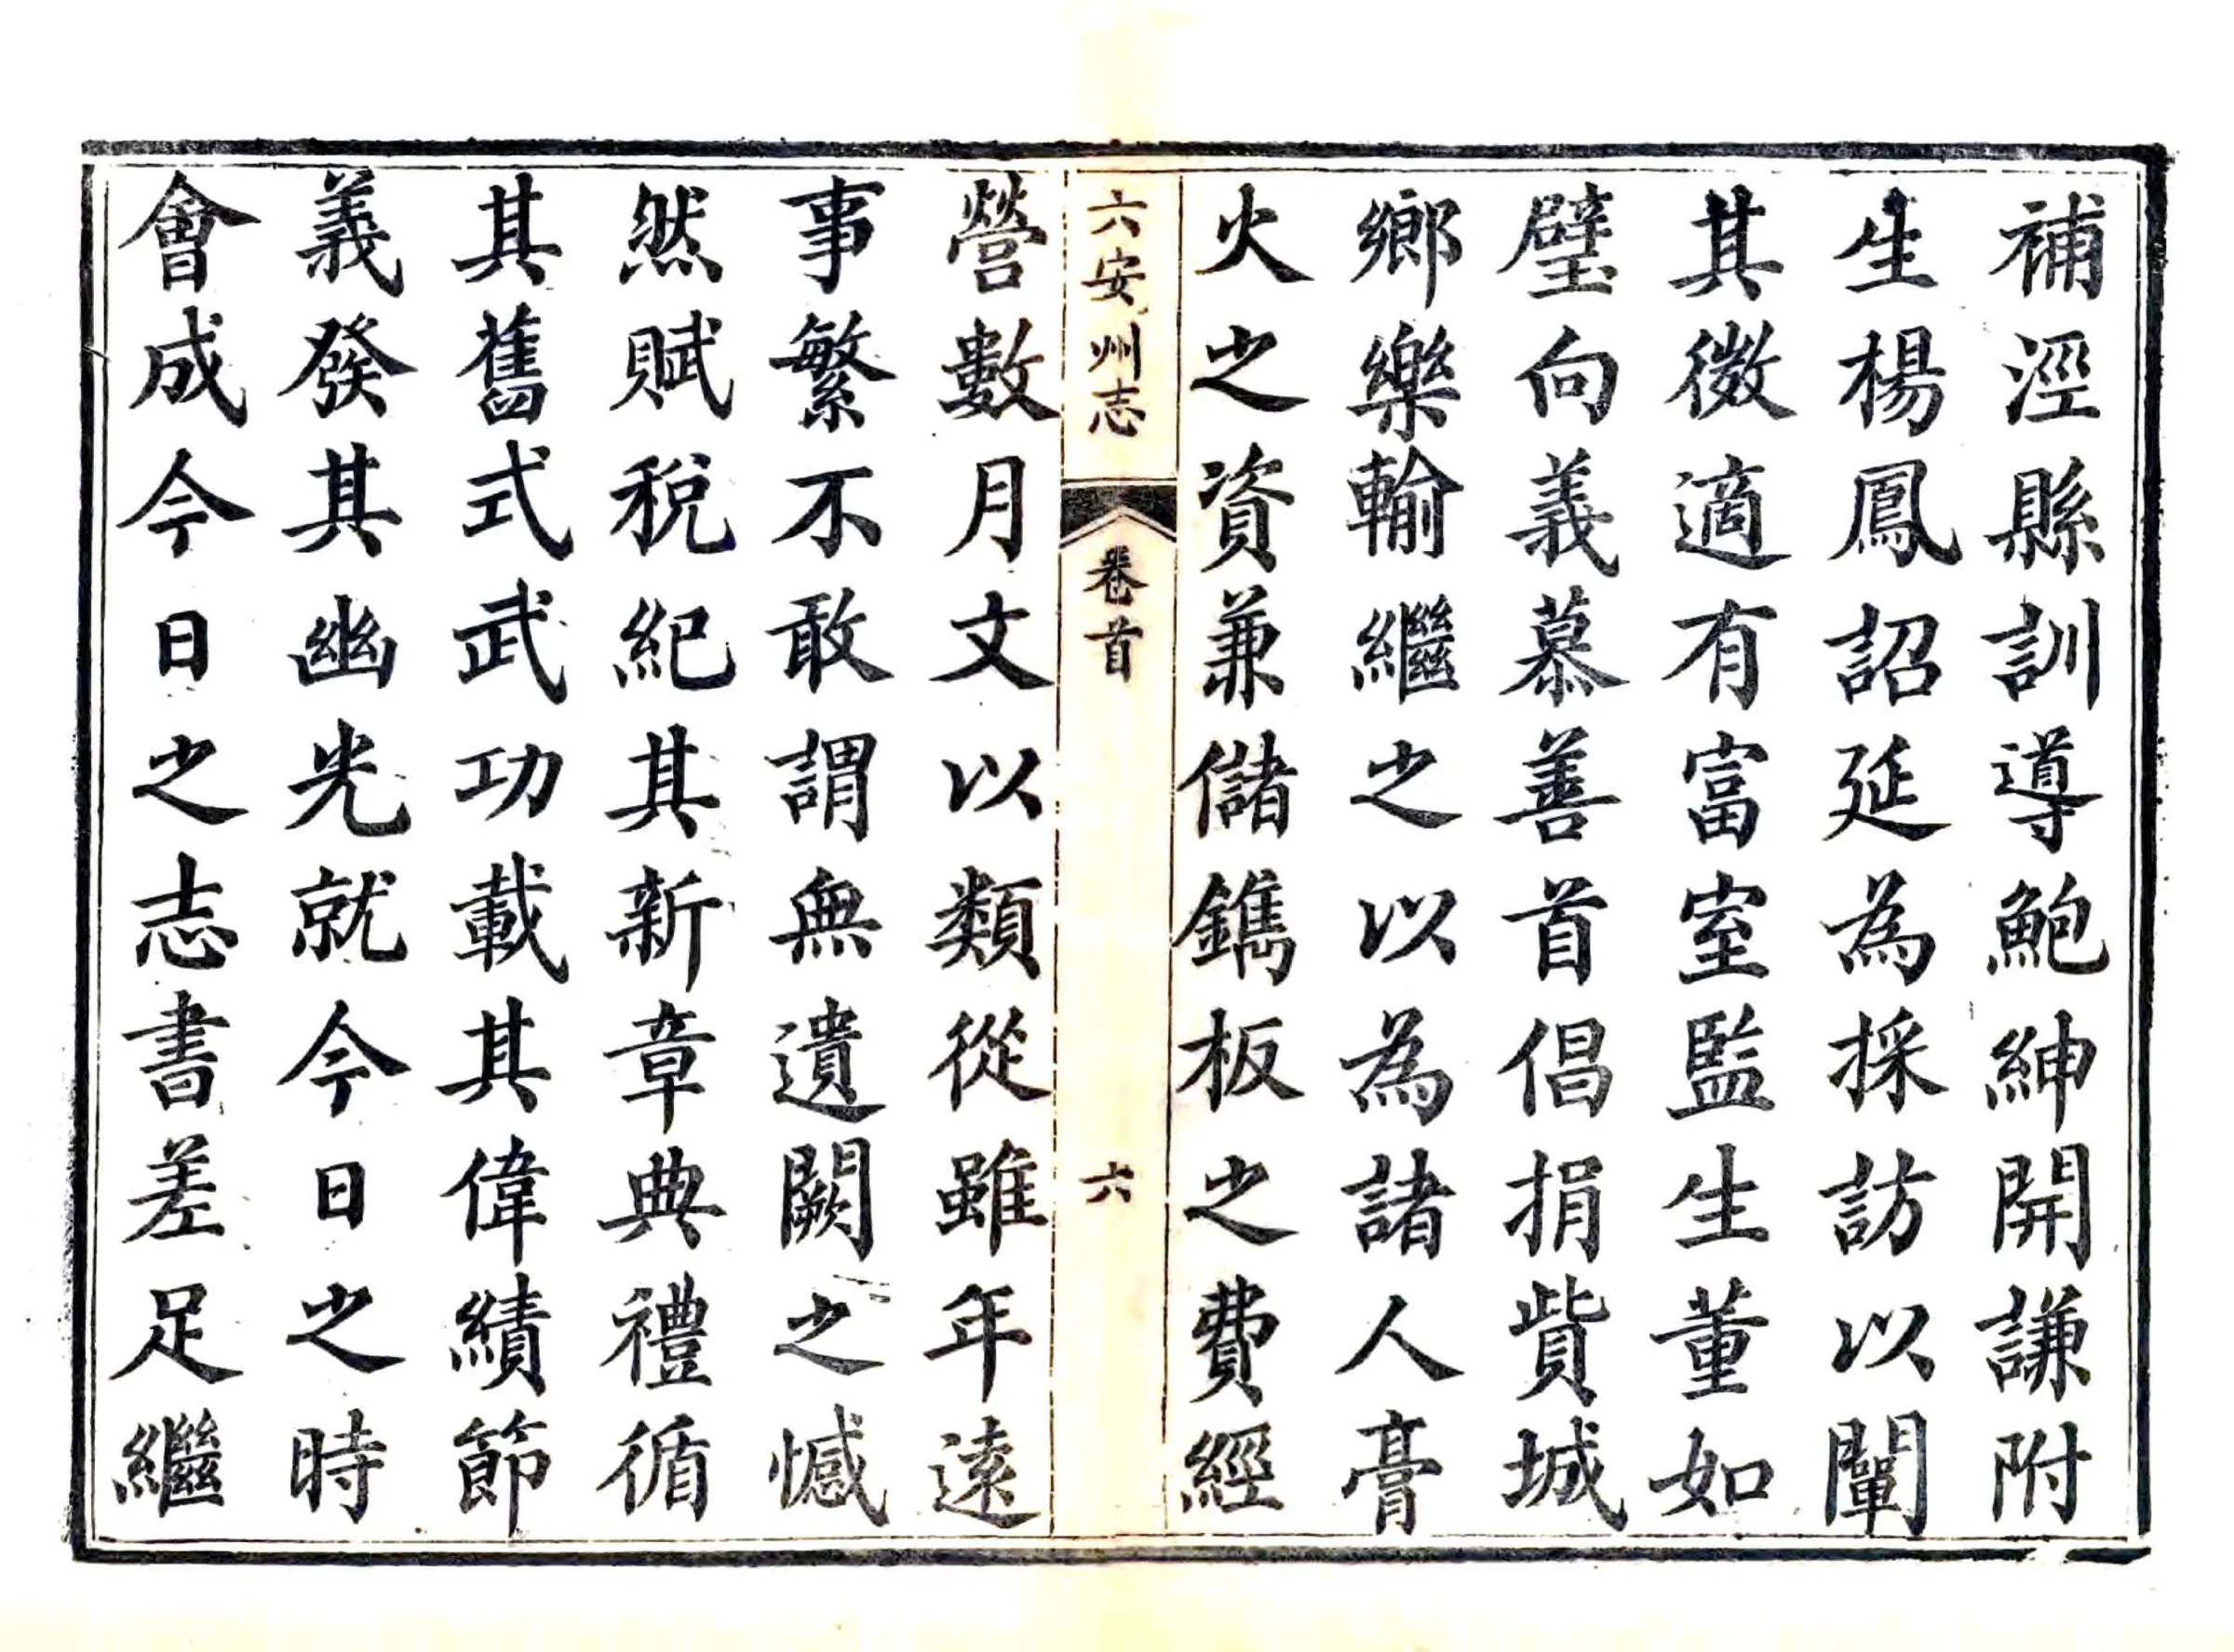 補涇縣訓導鮑紳開謙附
生楊鳳詔延為採訪以闡
其微適有富室監生董如
璧向義慕善首倡捐貲城
鄉樂輸繼之以為諸人膏
火之資兼儲鐫板之費經
六安州志 卷首 六
營數月文以類從雖年遠
事繁不敢謂無遺闕之憾
然賦稅紀其新章典禮循
其舊式武功載其偉績節
義發其幽光就今日之時
會成今日之志書差足繼